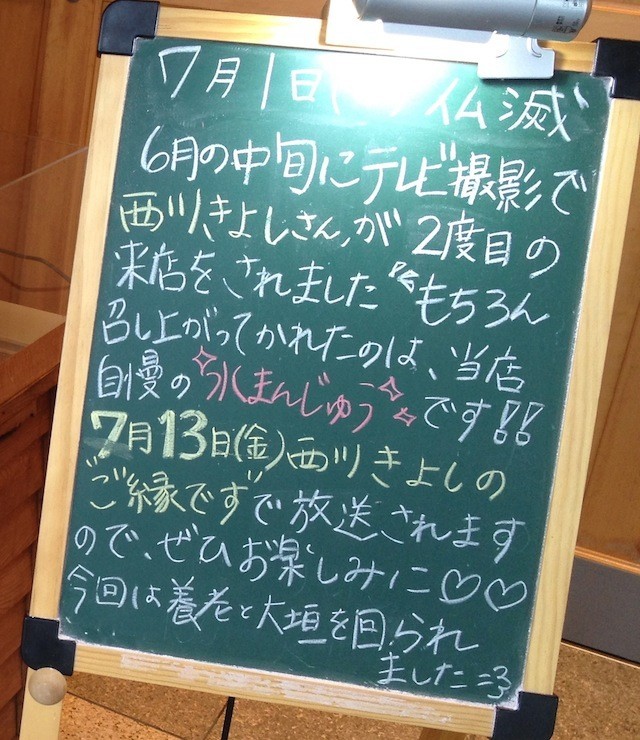 7月1日( 仏滅
6月の中旬にテレビ撮影で
西川きよしさんが2度目の
来店をされました もちろん
召し上がってかれたのは、当店
自慢の水まんじゅうです!!
7月13日(金)西川きよしの
"ご縁です"で放送されます
ので、ぜひお楽しみに♡♡
今回は養老と大垣を回られ
ました